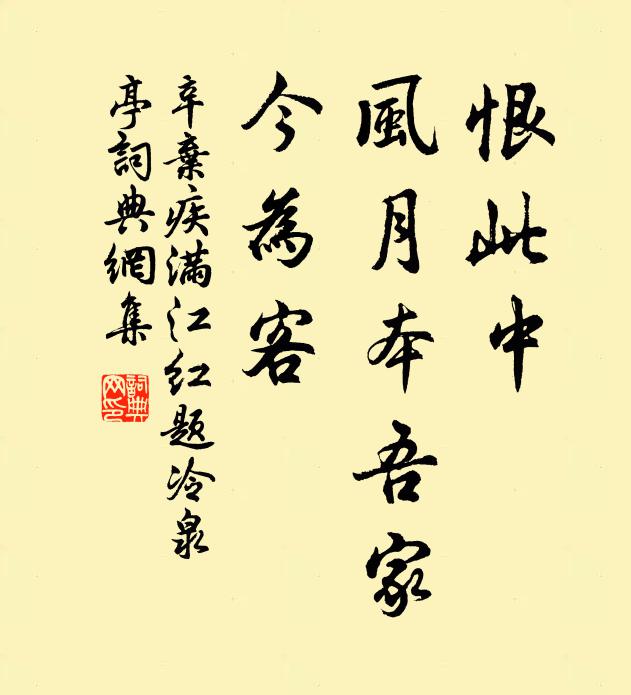 恨此中
風月本吾家
今為客
辛棄疾满江红题冷泉
亭詞典網集
詞典
网印